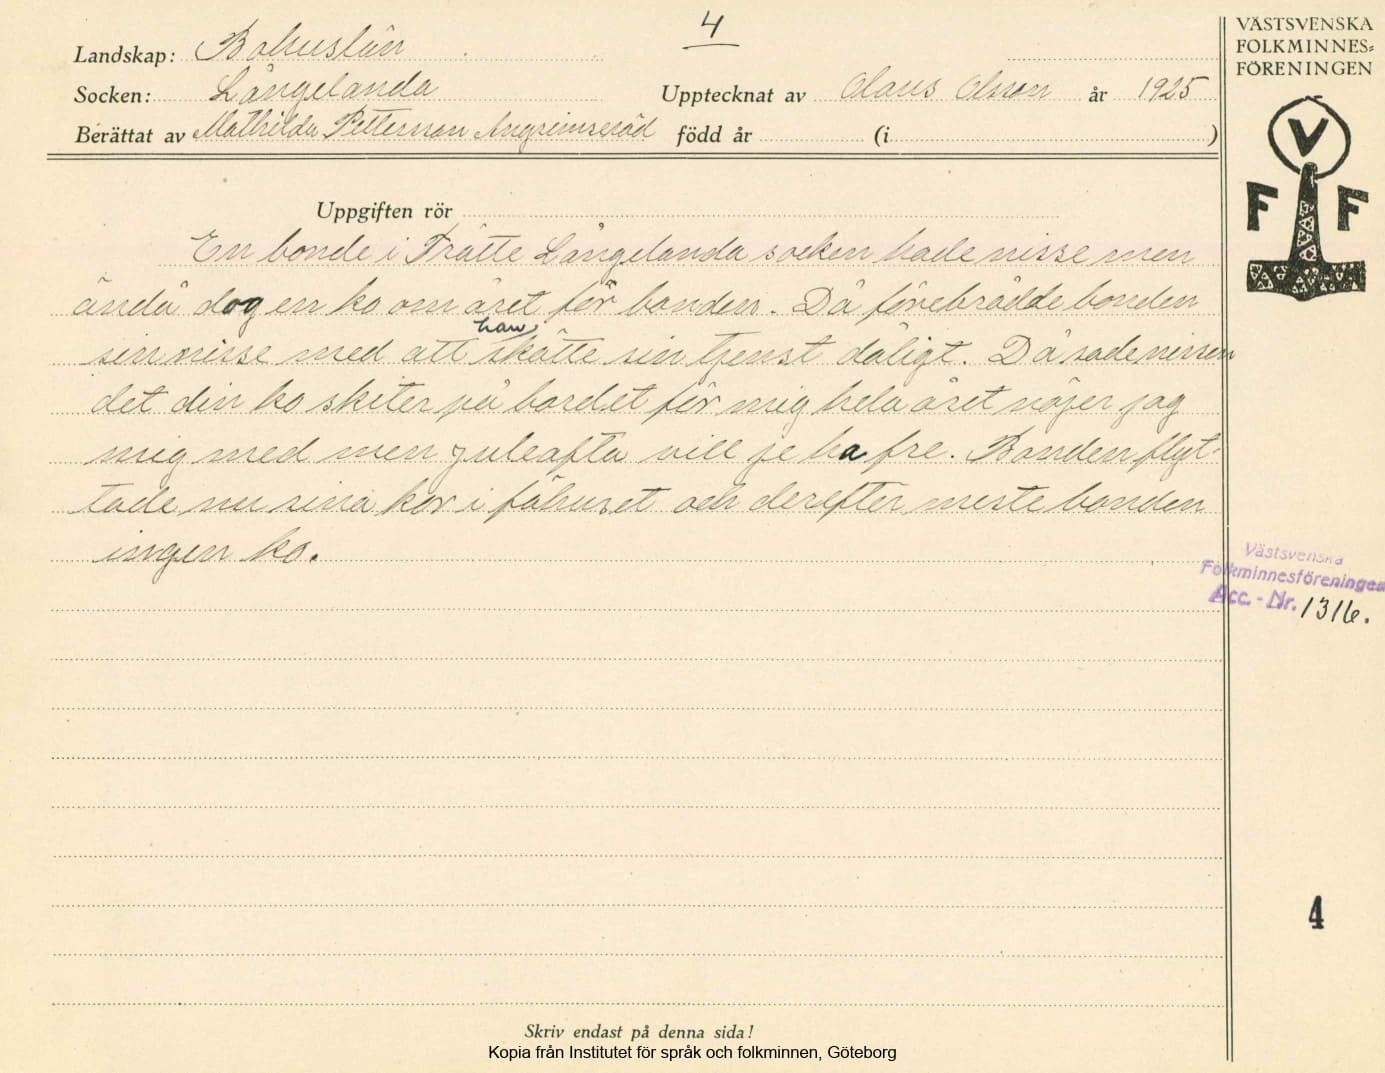 4
VÄSTSVENSKA
FOLKMINNES=
FÖRENINGEN
Landskap: Bohuslän
Socken: Långelanda Upptecknat av Olaus Olsson år 1925
Berättat av Mathilda Pettersson Angrimseröd född år (i )
V
F F
Uppgiften rör
En bonde i Tråtte Långelanda socken hade nisse men
ändå dog en ko om året för bonden. Då förebrådde bonden
sin nisse med att han skötte sin tjenst dåligt. Då sade nissen
det din ko skiter på bordet för mig hela året nöjer jag
mig med men juleafta vill je ha fre. Bonden flyt-
tade nu sina kor i fähuset och derefter miste bonden
ingen ko.
Västsvenska
Folkminnesföreningen
Acc. - Nr. 1316.
4
Skriv endast på denna sida!
Kopia från Institutet för språk och folkminnen, Göteborg